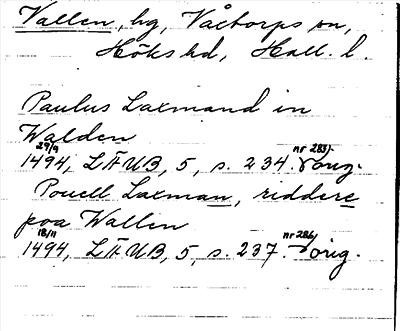 Vallen, hg, Våxtorps sn,
Höks hd, Hall. l.
Paulus Laxmand in
Walden
29/9 nr 283).
1494, LÄUB, 5, s. 234. orig.
Pouell Laxman, riddere
poa Wallen
18/11 nr 286)
1494, LÄUB, 5, s. 237. orig.